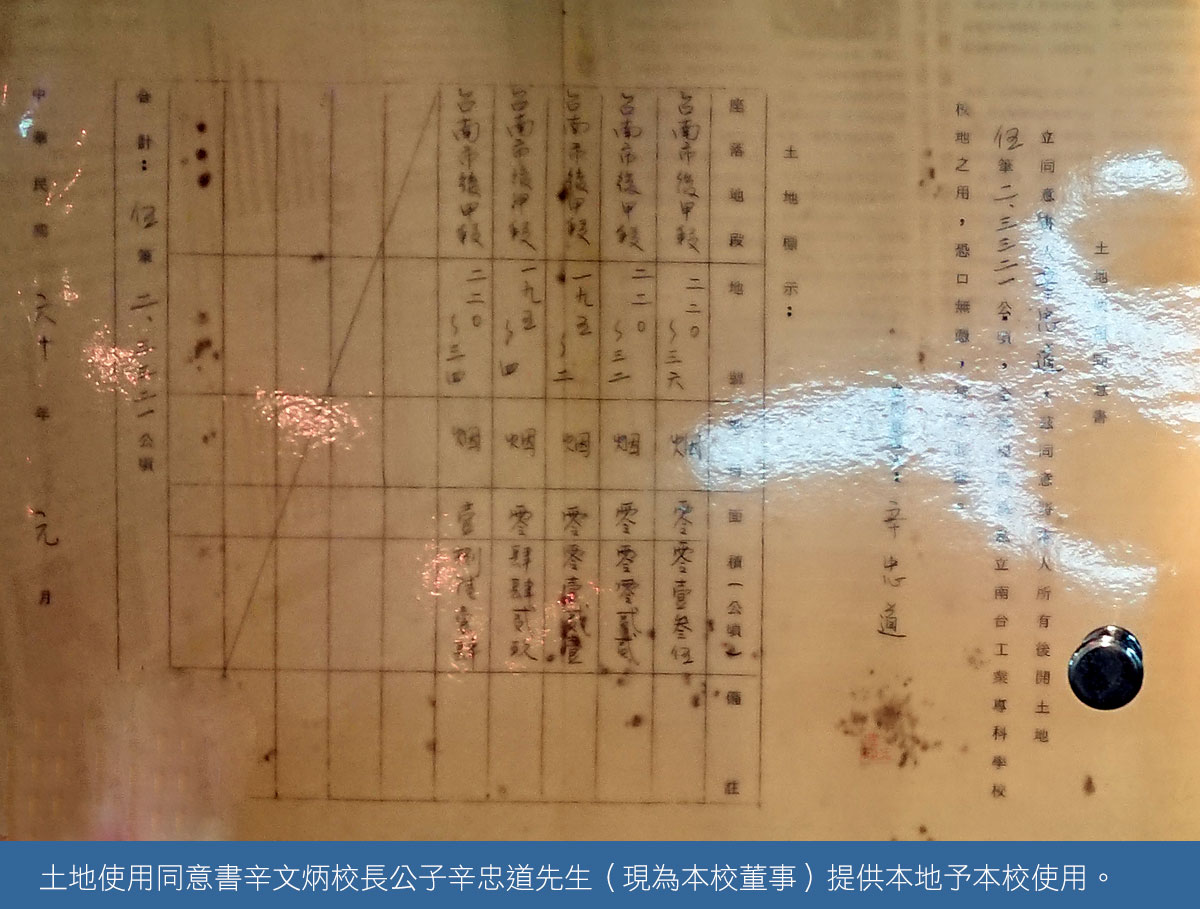 土地同意書
立同意書人辛忠道，茲同意將本人所有後開土地
伍筆二、三三二一公頃，立南台工業專科學校
校地之用，恐口無憑，
辛忠道
土地標示：
座落地段 地號 面積（公頃） 備註
台南市後甲段 二二０～三六 烟 零零壹叁伍
台南市後甲段 二二０～三二 烟 零零零貳貳
台南市後甲段 一九五～二 烟 零零壹貳壹
台南市後甲段 一九五～四 烟 零肆肆貳玖
台南市後甲段 二二０～三四 烟 壹捌陸壹肆
合計：伍筆二、三三二一公頃
中華民國六十年元月
土地使用同意書辛文炳校長公子辛忠道先生（現為本校董事）提供本地予本校使用。